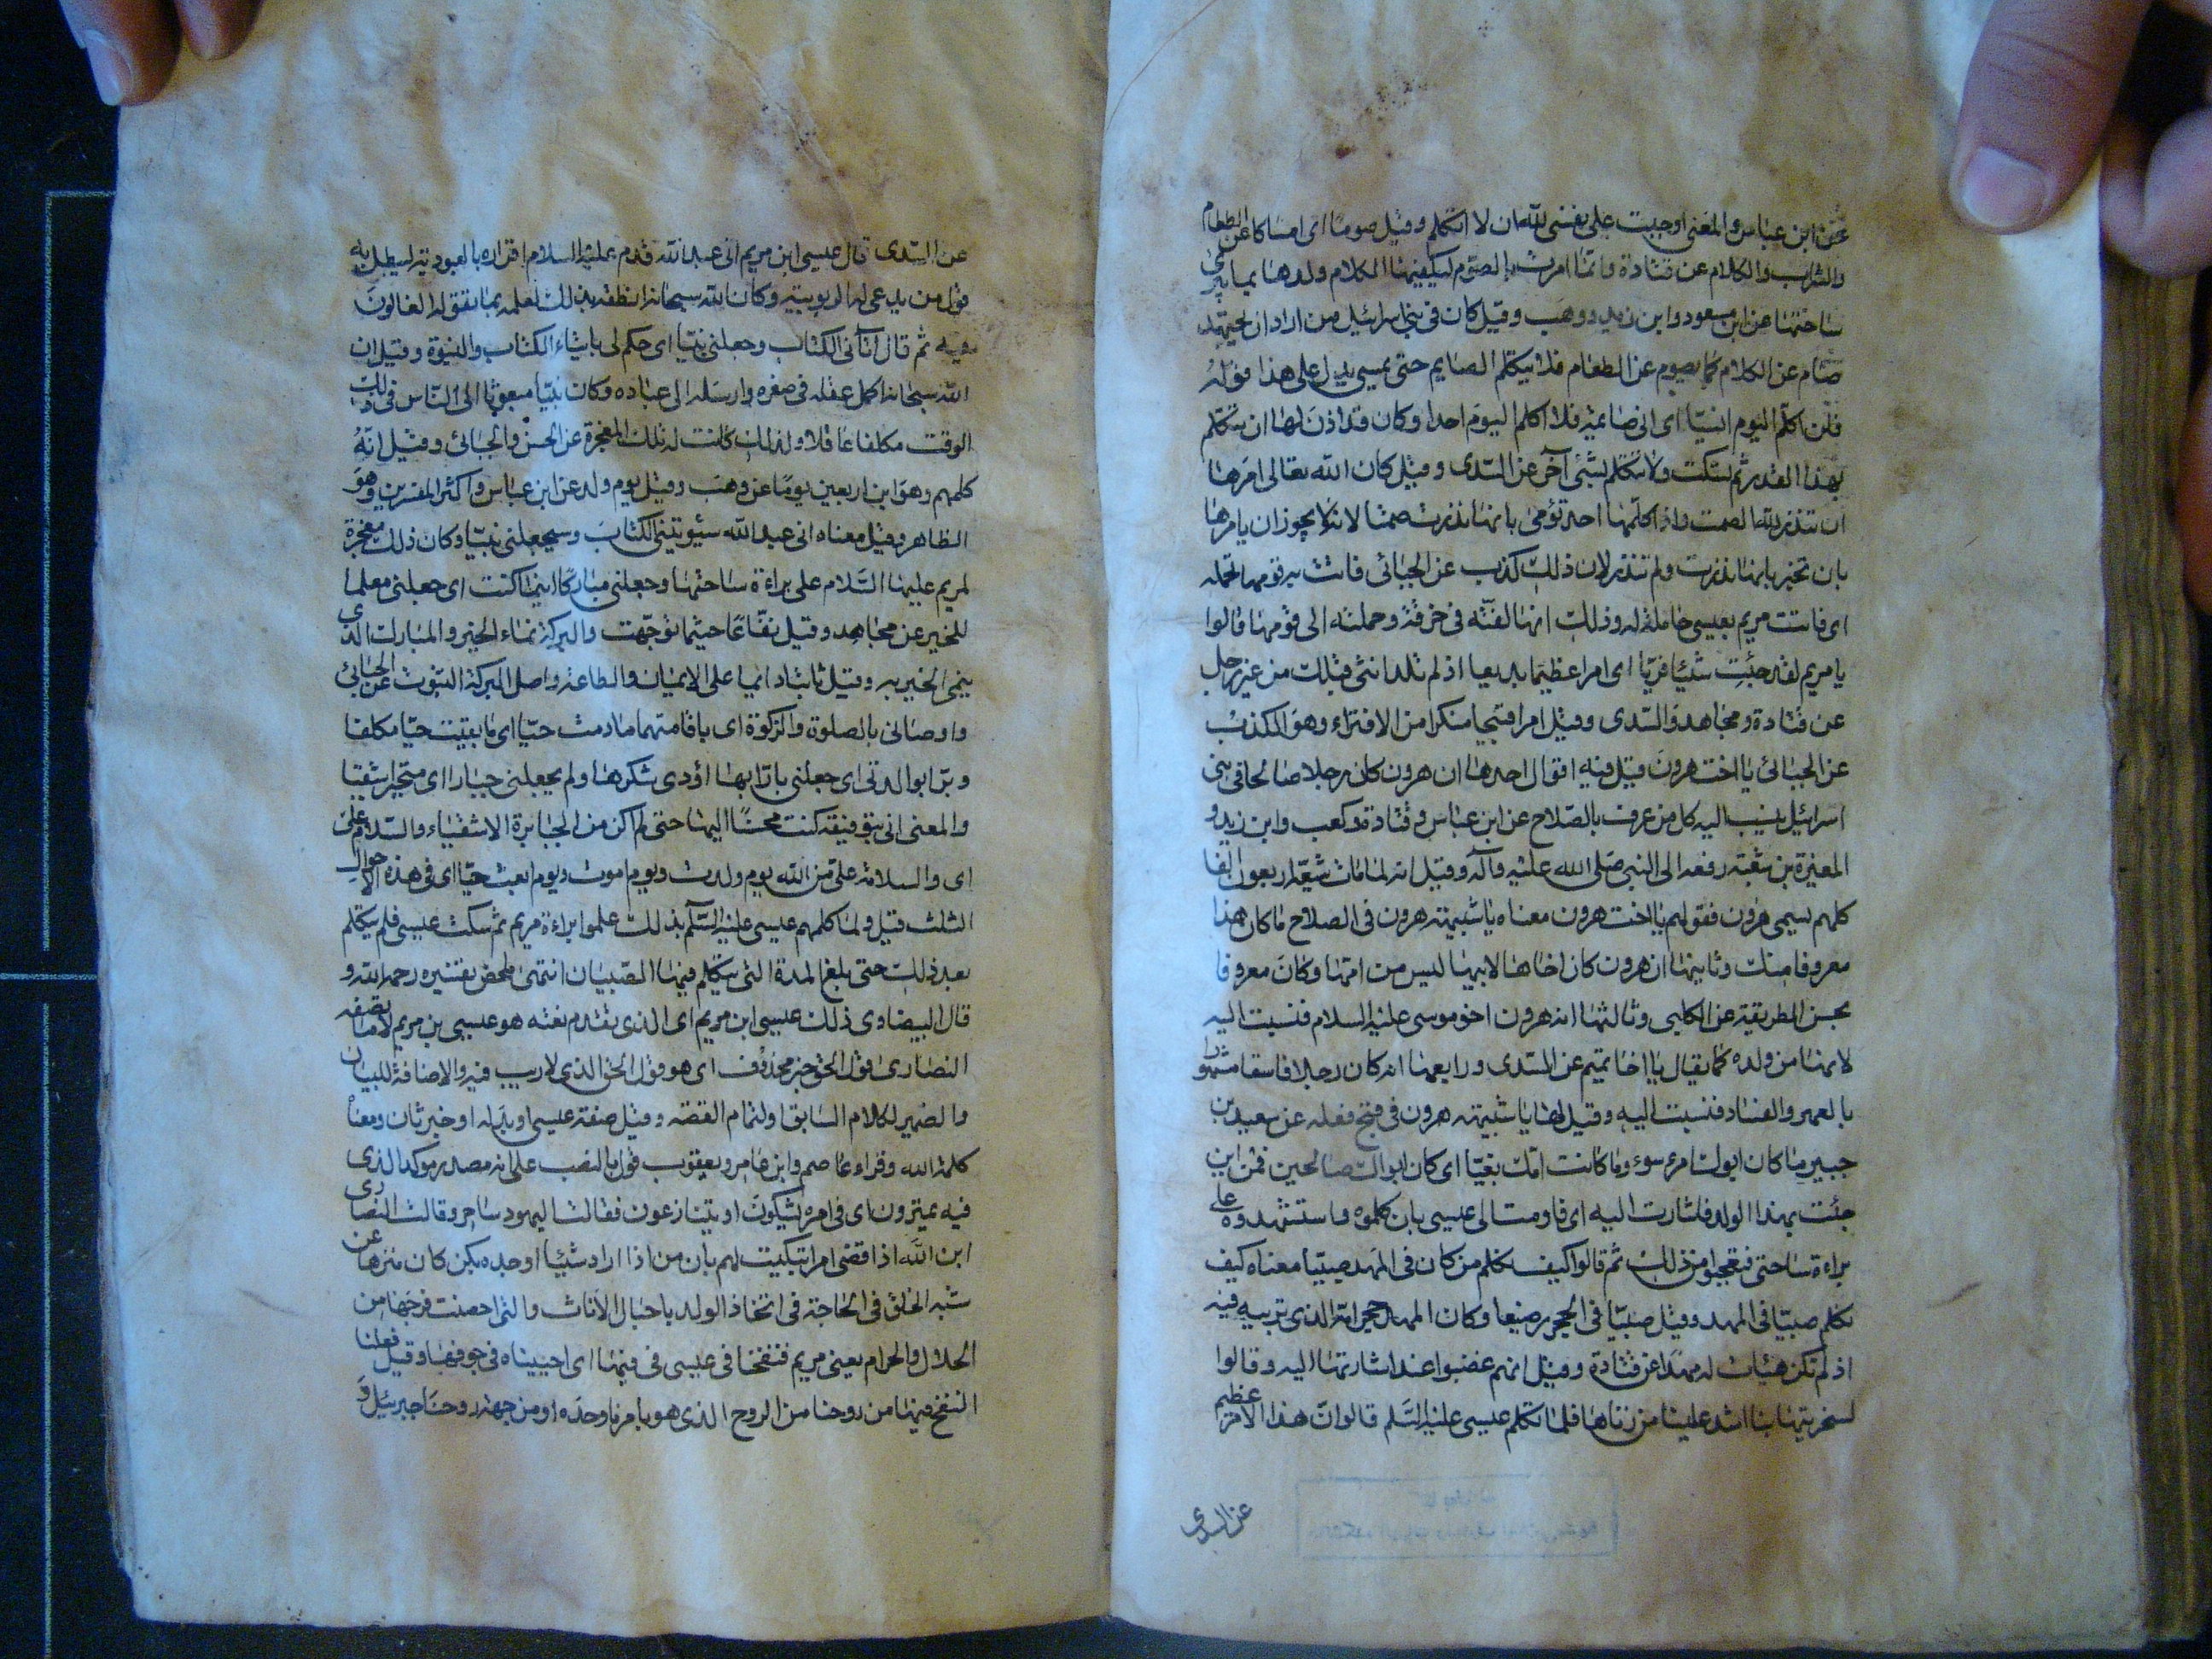 عن ابن عباس والمعنى اوجبت على نفسى لله ان لا اتكلم وقيل صوما اى امساكا عن الطعام
والشراب والكلام عن قتادة وانما امرت بالصوم ليكفيها الكلام ولدها بما يبرئ
ساحتها عن ابن مسعود وابن زيد ووهب وقيل كان فى بنى اسرائيل من اراد ان يجتهد
صام عن الكلام كما يصوم عن الطعام فلا يتكلم الصايم حتى يمسى يدل على هذا قوله
فلن اكلم اليوم انسيا اى انى صايمة فلا اكلم اليوم احدا وكان قد اذن لها ان تتكلم
بهذا القدر ثم تسكت ولا تتكلم بشئ آخر عن السدى وقيل كان الله تعالى امرها
ان تنذر لله الصمت واذا كلمها احد تؤمى بانها نذرت صمتا لانه لا يجوز ان يامرها
بان تخبر بانها نذرت ولم تنذر لان ذلك كذب عن الجبائى فاتت به قومها تحمله
اى فاتت مريم بعيسى حاملة له وذلك انها لفته فى خرقة وحملته الى قومها قالوا
يا مريم لقد جئت شيئا فريا اى امرا عظيما بديعا اذ لم تلد انثى قبلك من غير رجل
عن قتادة ومجاهد والسدى وقيل امرا قبيحا منكرا من الافتراء وهو الكذب
عن الجبائى يا اخت هرون قيل فيه اقوال احدها ان هرون كان رجلا صالحا فى بنى
اسرائيل ينسب اليه كل من عرف بالصلاح عن ابن عباس وقتادة وكعب وابن زيد و
المغيرة بن شعبة رفعه الى النبى صلى الله عليه وآله وقيل انه لما مات شيعه اربعون الفا
كلهم يسمى هرون فقولهم يا اخت هرون معناه يا شبيهة هرون فى الصلاح ما كان هذا
معروفا منك وثانيها ان هرون كان اخاها لابيها ليس من امها وكان معروفا
بحسن الطريقة عن الكلبى وثالثها انه هرون اخو موسى عليه السلام فنسبت اليه
لانها من ولده كما يقال يا اخا تميم عن السدى ورابعها انه كان رجلا فاسقا مشهورا
بالعهر والفساد فنسبت اليه وقيل لها يا شبيهة هرون فى قبح فعله عن سعيد بن
جبير ما كان ابوك امرء سوء وما كانت امك بغيا اى كان ابواك صالحين فمن اين
جئت بهذا الولد فاشارت اليه اى فاومت الى عيسى بان كلموه واستشهدوه على
براءة ساحتى فتعجبوا من ذلك ثم قالوا كيف نكلم من كان فى المهد صبيا معناه كيف
نكلم صبيا فى المهد وقيل صبيا فى الحجر رضيعا وكان المهد حجر امه الذى تربيه فيه
اذ لم تكن هيات له مهدا عن قتادة وقيل انهم غضبوا عند اشارتها اليه وقالوا
لسخريتها بنا اشد علينا من زناها فلما تكلم عيسى عليه السلم قالوا ان هذا الامر عظيم
عن السدى
عن السدى قال عيسى ابن مريم انى عبد الله قدم عليه السلام اقراره بالعبودية ليبطل به
قول من يدعى له الربوبية وكان الله سبحانه انطقه بذلك لعلمه بما يقوله الغالون
فيه ثم قال آتانى الكتاب وجعلنى نبيا اى حكم لى بايتاء الكتاب والنبوة وقيل ان
الله سبحانه اكمل عقله فى صغره وارسله الى عباده وكان نبيا مبعوثا الى الناس فى ذلك
الوقت مكلفا عاقلا ولذلك كانت له تلك المعجزة عن الحسن والجبائى وقيل انه
كلمهم وهو ابن اربعين يوما عن وهب وقيل يوم ولد عن ابن عباس واكثر المفسرين وهو
الظاهر وقيل معناه انى عبد الله سيؤتينى الكتاب وسيجعلنى نبيا وكان ذلك معجزة
لمريم عليها السلام على براءة ساحتها وجعلنى مباركا اينما كنت اى جعلنى معلما
للخير عن مجاهد وقيل نفاعا حيثما توجهت والبركة نماء الخير والمبارك الذى
ينمى الخير به وقيل ثابتا دائما على الايمان والطاعة واصل البركة الثبوت عن الجبائى
واوصانى بالصلوة والزكوة اى باقامتهما ما دمت حيا اى ما بقيت حيا مكلفا
وبرا بوالدتى اى جعلنى بارا بها اؤدى شكرها ولم يجعلنى جبارا اى متجبرا شقيا
والمعنى انى بتوفيقه كنت محسنا اليها حتى لم اكن من الجبابرة الاشقياء والسلام على
اى والسلامة على من الله يوم ولدت ويوم اموت ويوم ابعث حيا اى فى هذه الاحوال
الثلث قيل ولما كلمهم عيسى عليه السلم بذلك علموا براءة مريم ثم سكت عيسى فلم يتكلم
بعد ذلك حتى بلغ المدة التى يتكلم فيها الصبيان انتهى ملخص تفسيره رحمه الله و
قال البيضاوى ذلك عيسى ابن مريم اى الذى تقدم نعته هو عيسى بن مريم لا ما تصفه
النصارى قول الحق خبر محذوف اى هو قول الحق الذى لا ريب فيه والاضافة للبيان
والضمير للكلام السابق او لتمام القصة وقيل صفة عيسى او بدله او خبر ثان ومعناه
كلمة الله وقراء عاصم وابن عامر ويعقوب قول بالنصب على انه مصدر موكد الذى
فيه يمترون اى فى امره يشكون او يتنازعون فقالت اليهود ساحر وقالت النصارى
ابن الله اذا قضى امرا تبكيت لهم بان من اذا اراد شيئا اوجده بكن كان منزها عن
شبه الخلق فى الحاجة فى اتخاذ الولد باحبال الاناث والتى احصنت فرجها من
الحلال والحرام يعنى مريم فنفخنا فى عيسى فى فيها اى احييناه فى جوفها وقيل فعلنا
النفخ فيها من روحنا من الروح الذى هو بامرنا وحده او من جهة روحنا جبرئيل و